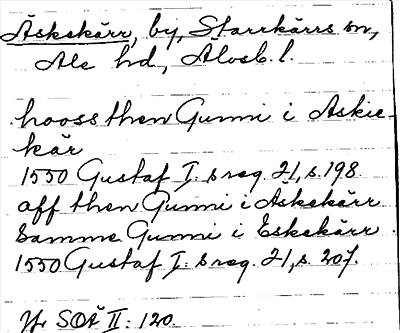 Äskekärr, by, Starrkärrs sn,
Ale hd, Älvsb. l.
hooss then Gunni i Askie-
kär
1550 Gustaf I:s reg. 21, s. 198.
aff then Gunni i Äskekärr
Samme Gunni i Eskekärr.
1550 Gustaf I:s reg. 21, s. 207.
Jfr SOÄ II: 120.